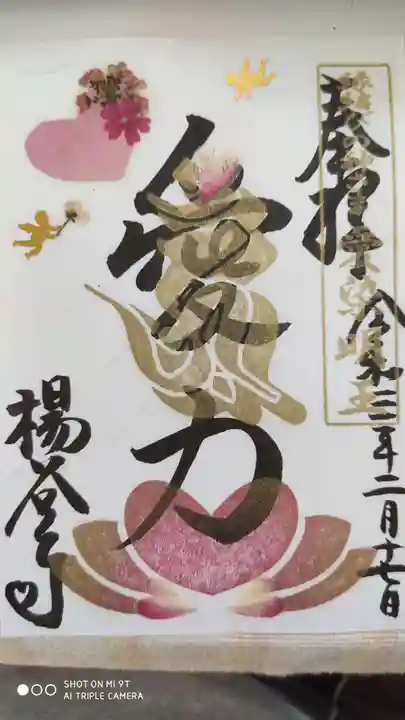 奉拝
令和三年二月十七日
愛力
楊谷寺
SHOT ON MI 9T
AI TRIPLE CAMERA